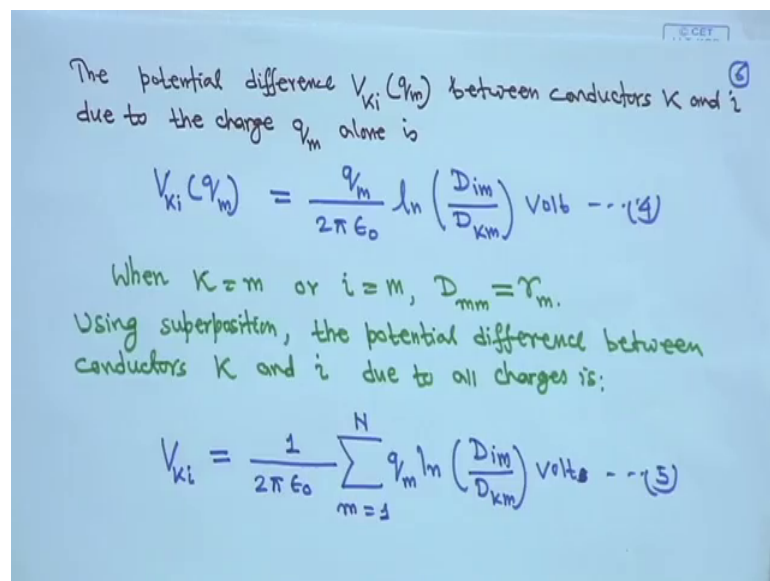 © CET
The potential difference V_Ki (q_m) between conductors K and i
⑥
due to the charge q_m alone is
V_Ki (q_m) = q_m / 2π ε₀ ln (D_im / D_Km) Volt ---(4)
When K = m or i = m, D_mm = r_m.
Using superposition, the potential difference between
conductors K and i due to all charges is:
V_Ki = 1 / 2π ε₀ ∑_{m=1}^{N} q_m ln (D_im / D_Km) volts ---(5)